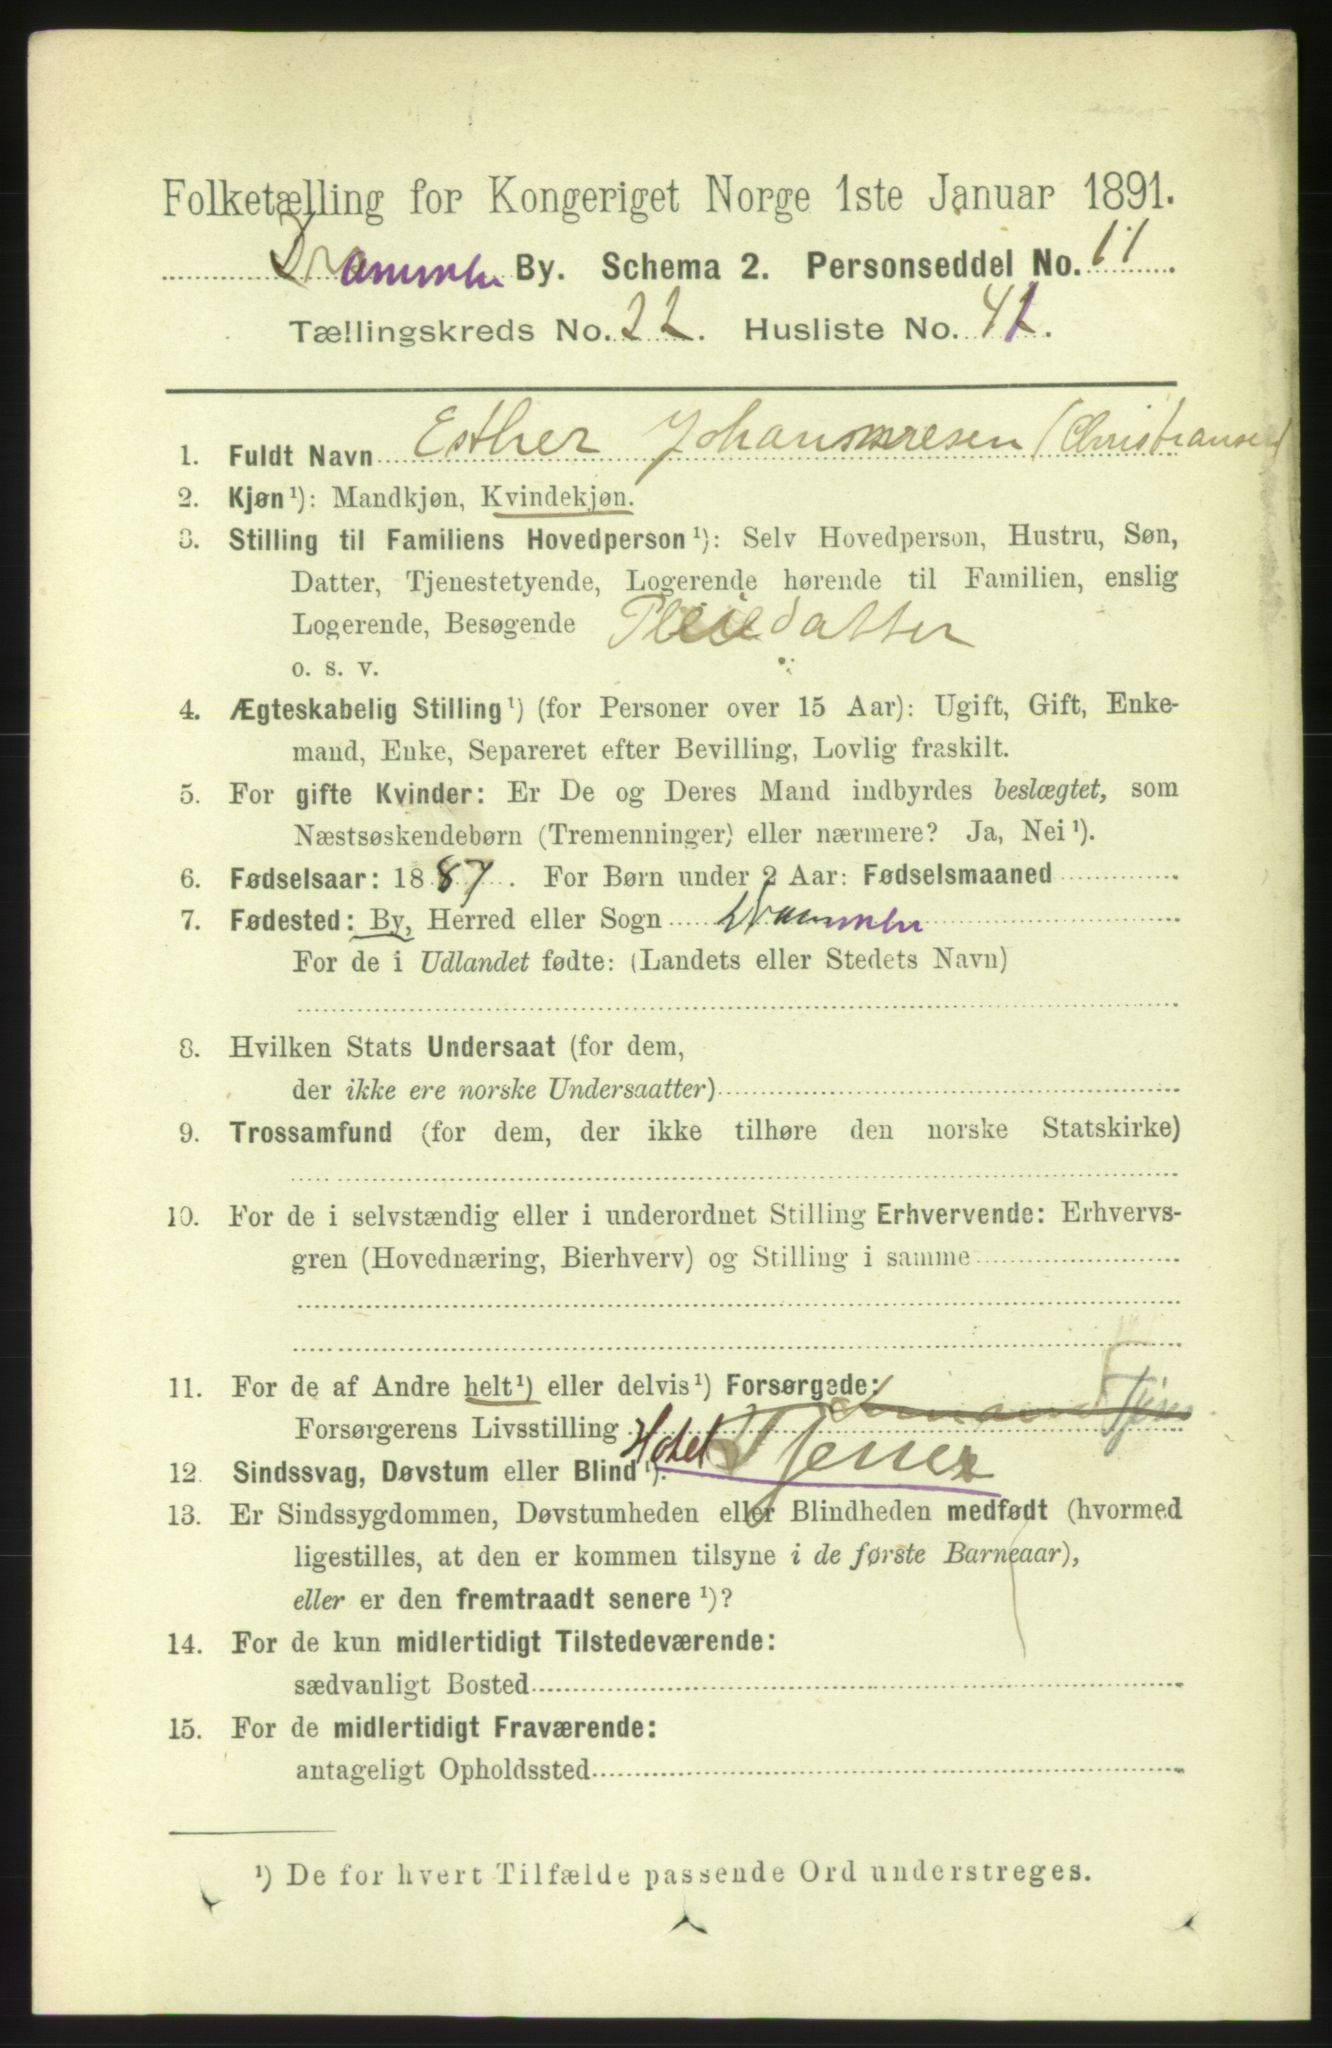 Folketælling for Kongeriget Norge 1ste Januar 1891.
Drammen By. Schema 2. Personseddel No. 11.
Tællingskreds No. 22. Husliste No. 42.
1. Fuldt Navn Esther Johannesen (Christiansen)
2. Kjøn ¹): Mandkjøn, Kvindekjøn.
3. Stilling til Familiens Hovedperson ¹): Selv Hovedperson, Hustru, Søn,
Datter, Tjenestetyende, Logerende hørende til Familien, enslig
Logerende, Besøgende Pleiedatter
o. s. v.
4. Ægteskabelig Stilling ¹) (for Personer over 15 Aar): Ugift, Gift, Enke-
mand, Enke, Separeret efter Bevilling, Lovlig fraskilt.
5. For gifte Kvinder: Er De og Deres Mand indbyrdes beslægtet, som
Næstsøskendebørn (Tremenninger) eller nærmere? Ja, Nei ¹).
6. Fødselsaar: 1887. For Børn under 2 Aar: Fødselsmaaned
7. Fødested: By, Herred eller Sogn Drammen
For de i Udlandet fødte: (Landets eller Stedets Navn)
8. Hvilken Stats Undersaat (for dem,
der ikke ere norske Undersaatter)
9. Trossamfund (for dem, der ikke tilhøre den norske Statskirke)
10. For de i selvstændig eller i underordnet Stilling Erhvervende: Erhvervs-
gren (Hovednæring, Bierhverv) og Stilling i samme
11. For de af Andre helt ¹) eller delvis ¹) Forsørgede:
Forsørgerens Livsstilling Hotel Tjener
12. Sindssvag, Døvstum eller Blind ¹).
13. Er Sindssygdommen, Døvstumheden eller Blindheden medfødt (hvormed
ligestilles, at den er kommen tilsyne i de første Barneaar),
eller er den fremtraadt senere ¹)?
14. For de kun midlertidigt Tilstedeværende:
sædvanligt Bosted
15. For de midlertidigt Fraværende:
antageligt Opholdssted
¹) De for hvert Tilfælde passende Ord understreges.